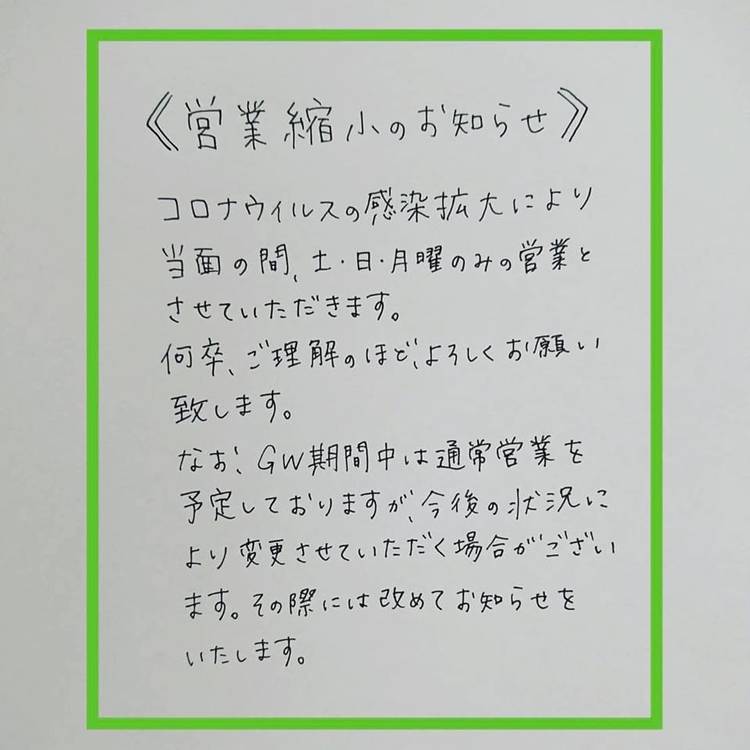 《営業縮小のお知らせ》
コロナウィルスの感染拡大により
当面の間、土・日・月曜のみの営業と
させていただきます。
何卒、ご理解のほど、よろしくお願い
致します。
なお、GW期間中は通常営業を
予定しておりますが、今後の状況に
より変更させていただく場合がござい
ます。その際には改めてお知らせを
いたします。